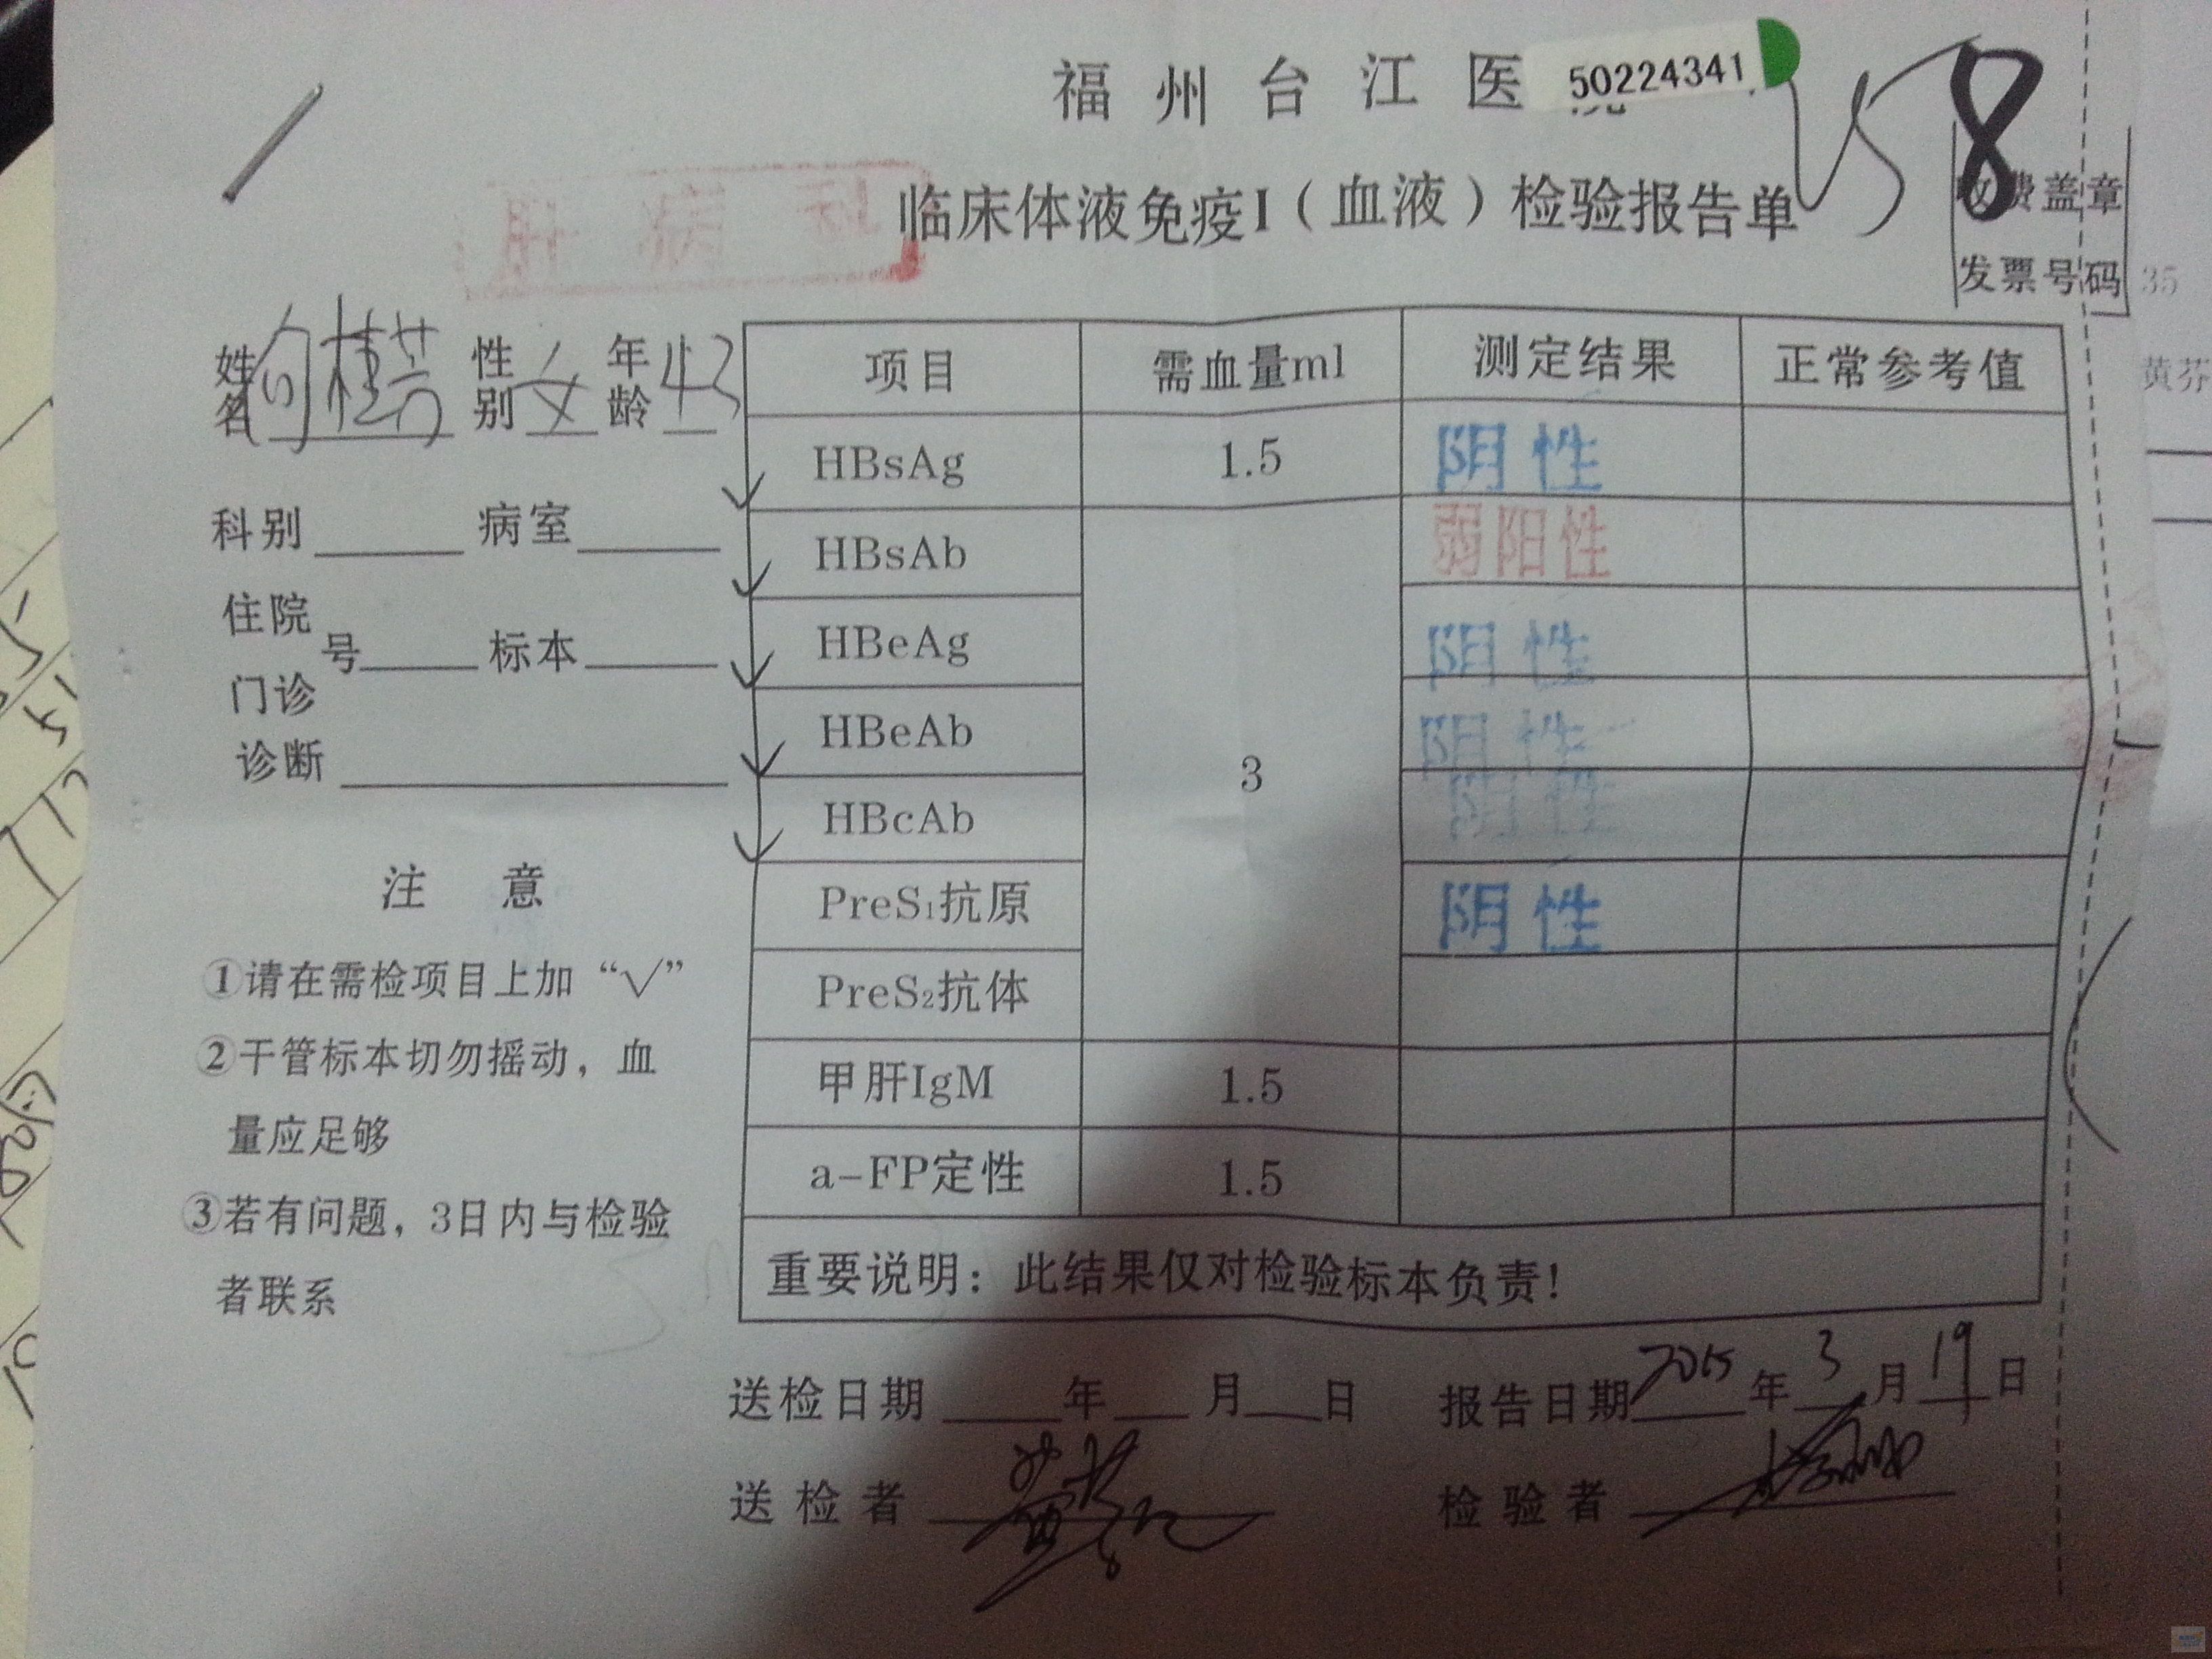 福州台江医 50224341
58
临床体液免疫I（血液）检验报告单
肝病科
收费盖章
发票号码 35
黄芬
姓名 向桂芳 性别 女 年龄 43
科别 病室
住院
门诊 号 标本
诊断
注 意
①请在需检项目上加“√”
②干管标本切勿摇动，血
量应足够
③若有问题，3日内与检验
者联系
项目 需血量ml 测定结果 正常参考值
√ HBsAg 1.5 阴性
√ HBsAb 弱阳性
√ HBeAg 阴性
√ HBeAb 阴性
3
√ HBcAb 阴性
PreS₁抗原 阴性
PreS₂抗体
甲肝IgM 1.5
a-FP定性 1.5
重要说明：此结果仅对检验标本负责！
送检日期 年 月 日 报告日期 2015 年 3 月 19 日
送检者 检验者